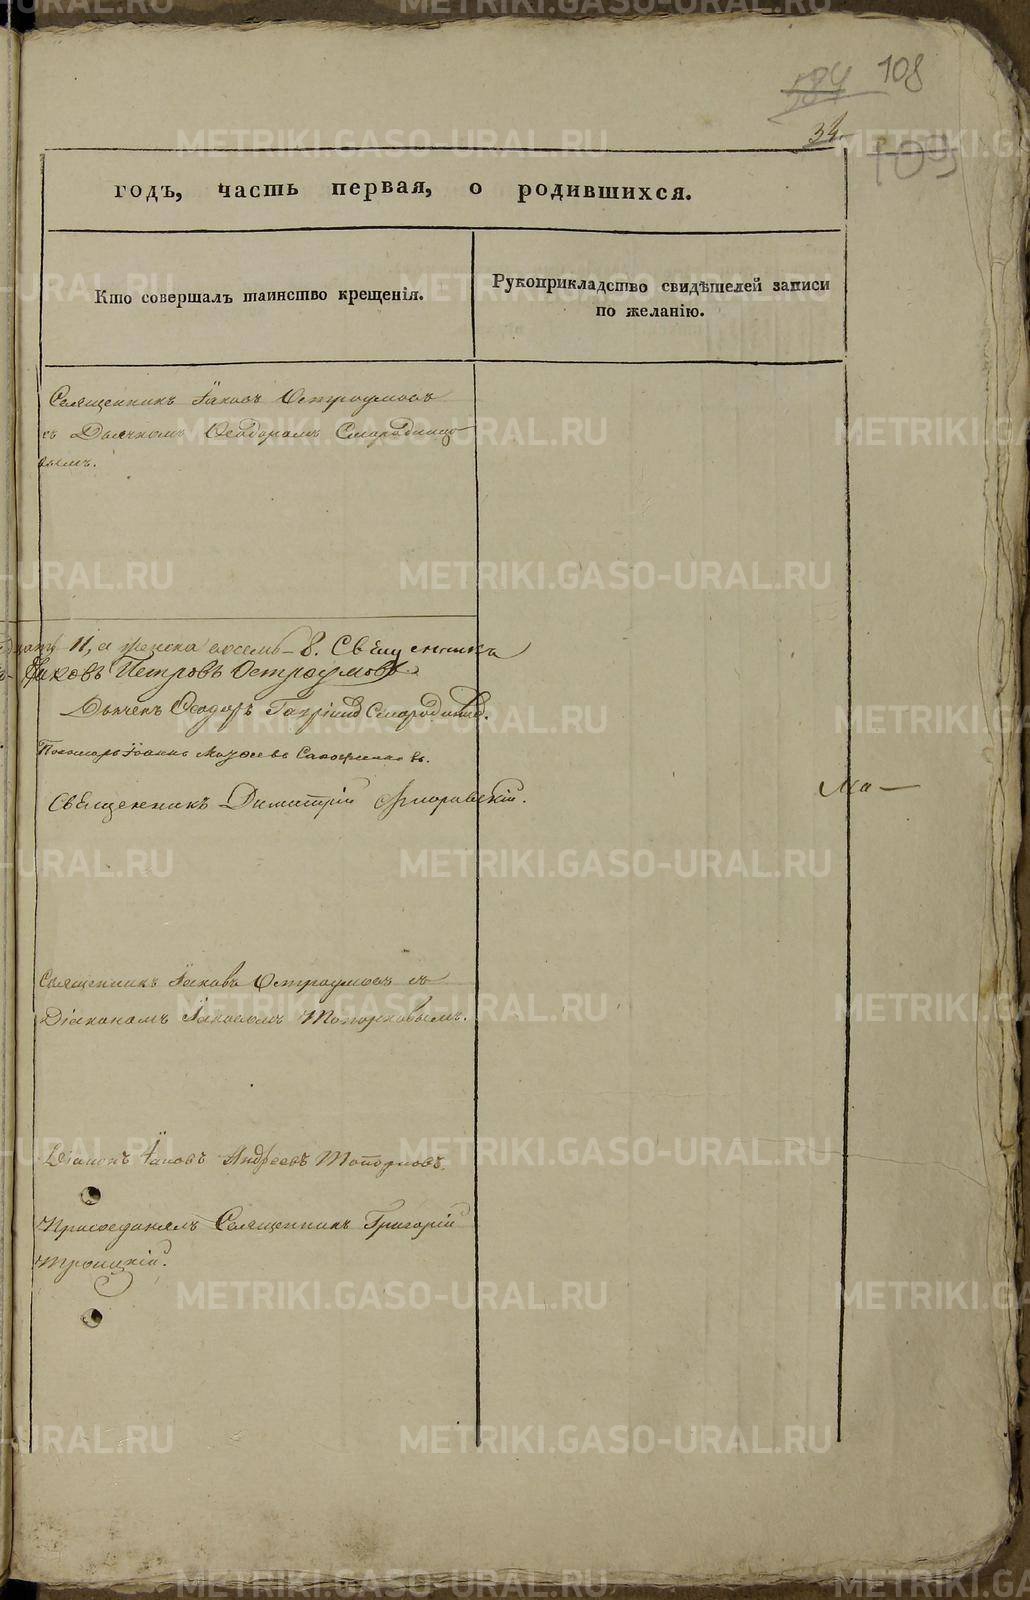 584 108
34.
109
годъ, часть первая, о родившихся.
Кто совершалъ таинство крещенія.
Рукоприкладство свидѣтелей записи
по желанію.
Священникъ Іаковъ Остроумовъ
съ Дьячкомъ Ѳеодоромъ Смородинцо
вымъ.
11, а женска восемь – 8. Священникъ
Іаковъ Петровъ Остроумовъ
Дьячекъ Ѳеодоръ Смородинцов.
Пономарь Іоаннъ
Священникъ Димитрій Флоровскій.
Ма –
Священникъ Іаковъ Остроумовъ съ
Діакономъ Іаковомъ Топорковымъ.
Діаконъ Іаковъ Андреевъ Топорковъ.
Присоединялъ Священникъ Григорій
Троицкій.
METRIKI.GASO-URAL.RU